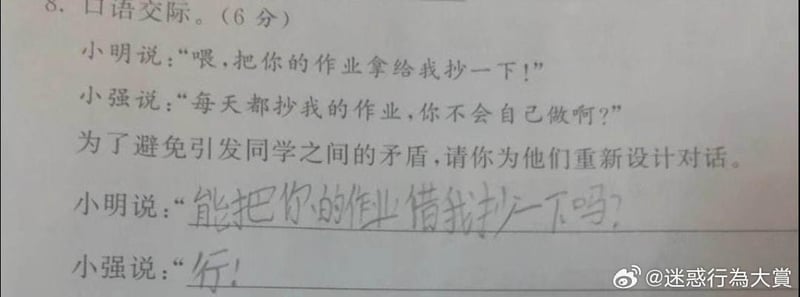 8. 口语交际。(6分)
小明说:“喂,把你的作业拿给我抄一下!”
小强说:“每天都抄我的作业,你不会自己做啊?”
为了避免引发同学之间的矛盾,请你为他们重新设计对话。
小明说:“能把你的作业借我抄一下吗?
小强说:“行!
@迷惑行為大賞